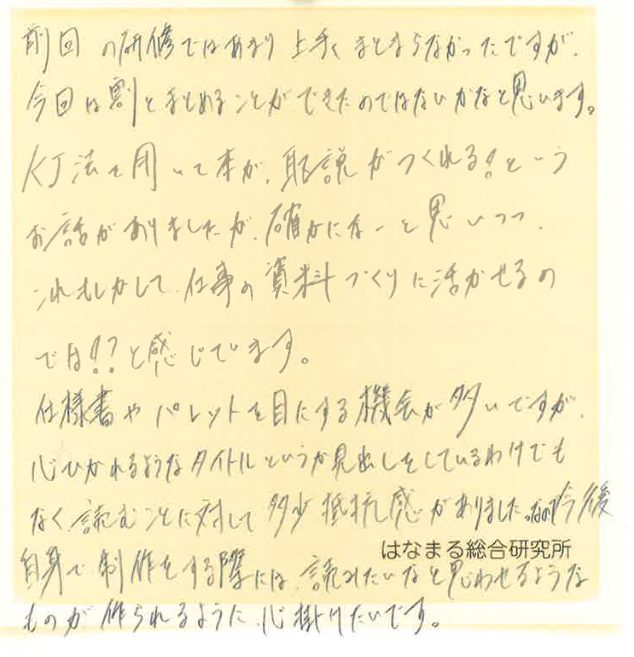 前回の研修ではあまり上手くまとまらなかったですが、
今回は割とまとめることができたのではないかなと思います。
KJ法を用いて本が、取説がつくれる!という
お話がありましたが、確かになーと思いつつ、
これもしかして、仕事の資料づくりに活かせるの
では!?と感じています。
仕様書やパレットを目にする機会が多いですが、
心ひかれるようなタイトルというか見出しをしているわけでも
なく、読むことに対して多少抵抗感がありました。なので今後
はなまる総合研究所
自身で制作をする際には、読みたいなと思わせるような
ものが作られるように、心掛けたいです。